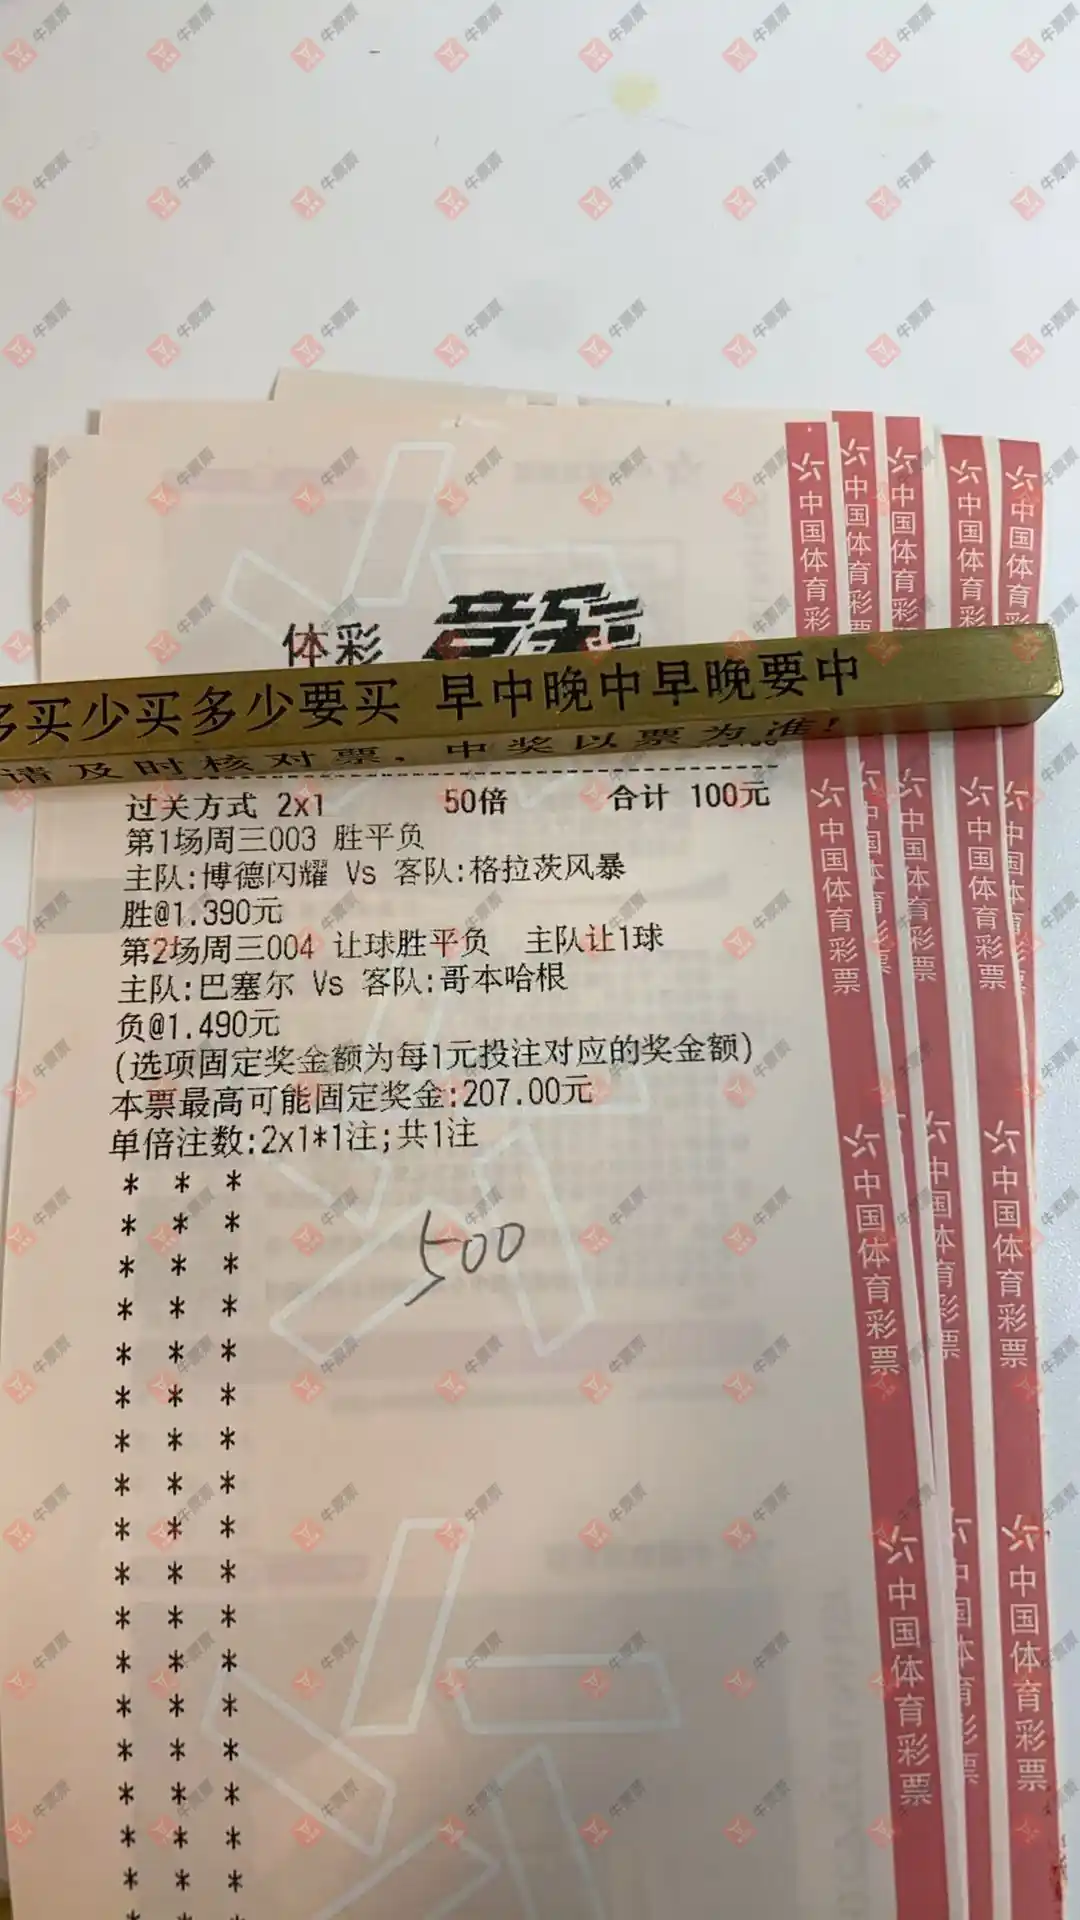 体彩
多买少买多少要买 早中晚中早晚要中
请及时核对票，中奖以票为准！
过关方式 2x1 50倍 合计 100元
第1场周三003 胜平负
主队:博德闪耀 Vs 客队:格拉茨风暴
胜@1.390元
第2场周三004 让球胜平负 主队让1球
主队:巴塞尔 Vs 客队:哥本哈根
负@1.490元
(选项固定奖金额为每1元投注对应的奖金额)
本票最高可能固定奖金:207.00元
单倍注数:2x1*1注;共1注
* * *
* * *
* * *
* * *
* * *
* * *
* * *
* * *
* * *
* * *
* * *
* * *
* * *
* * *
* * *
* * *
* * *
500
中国体育彩票
中国体育彩票
中国体育彩票
中国体育彩票
牛票票